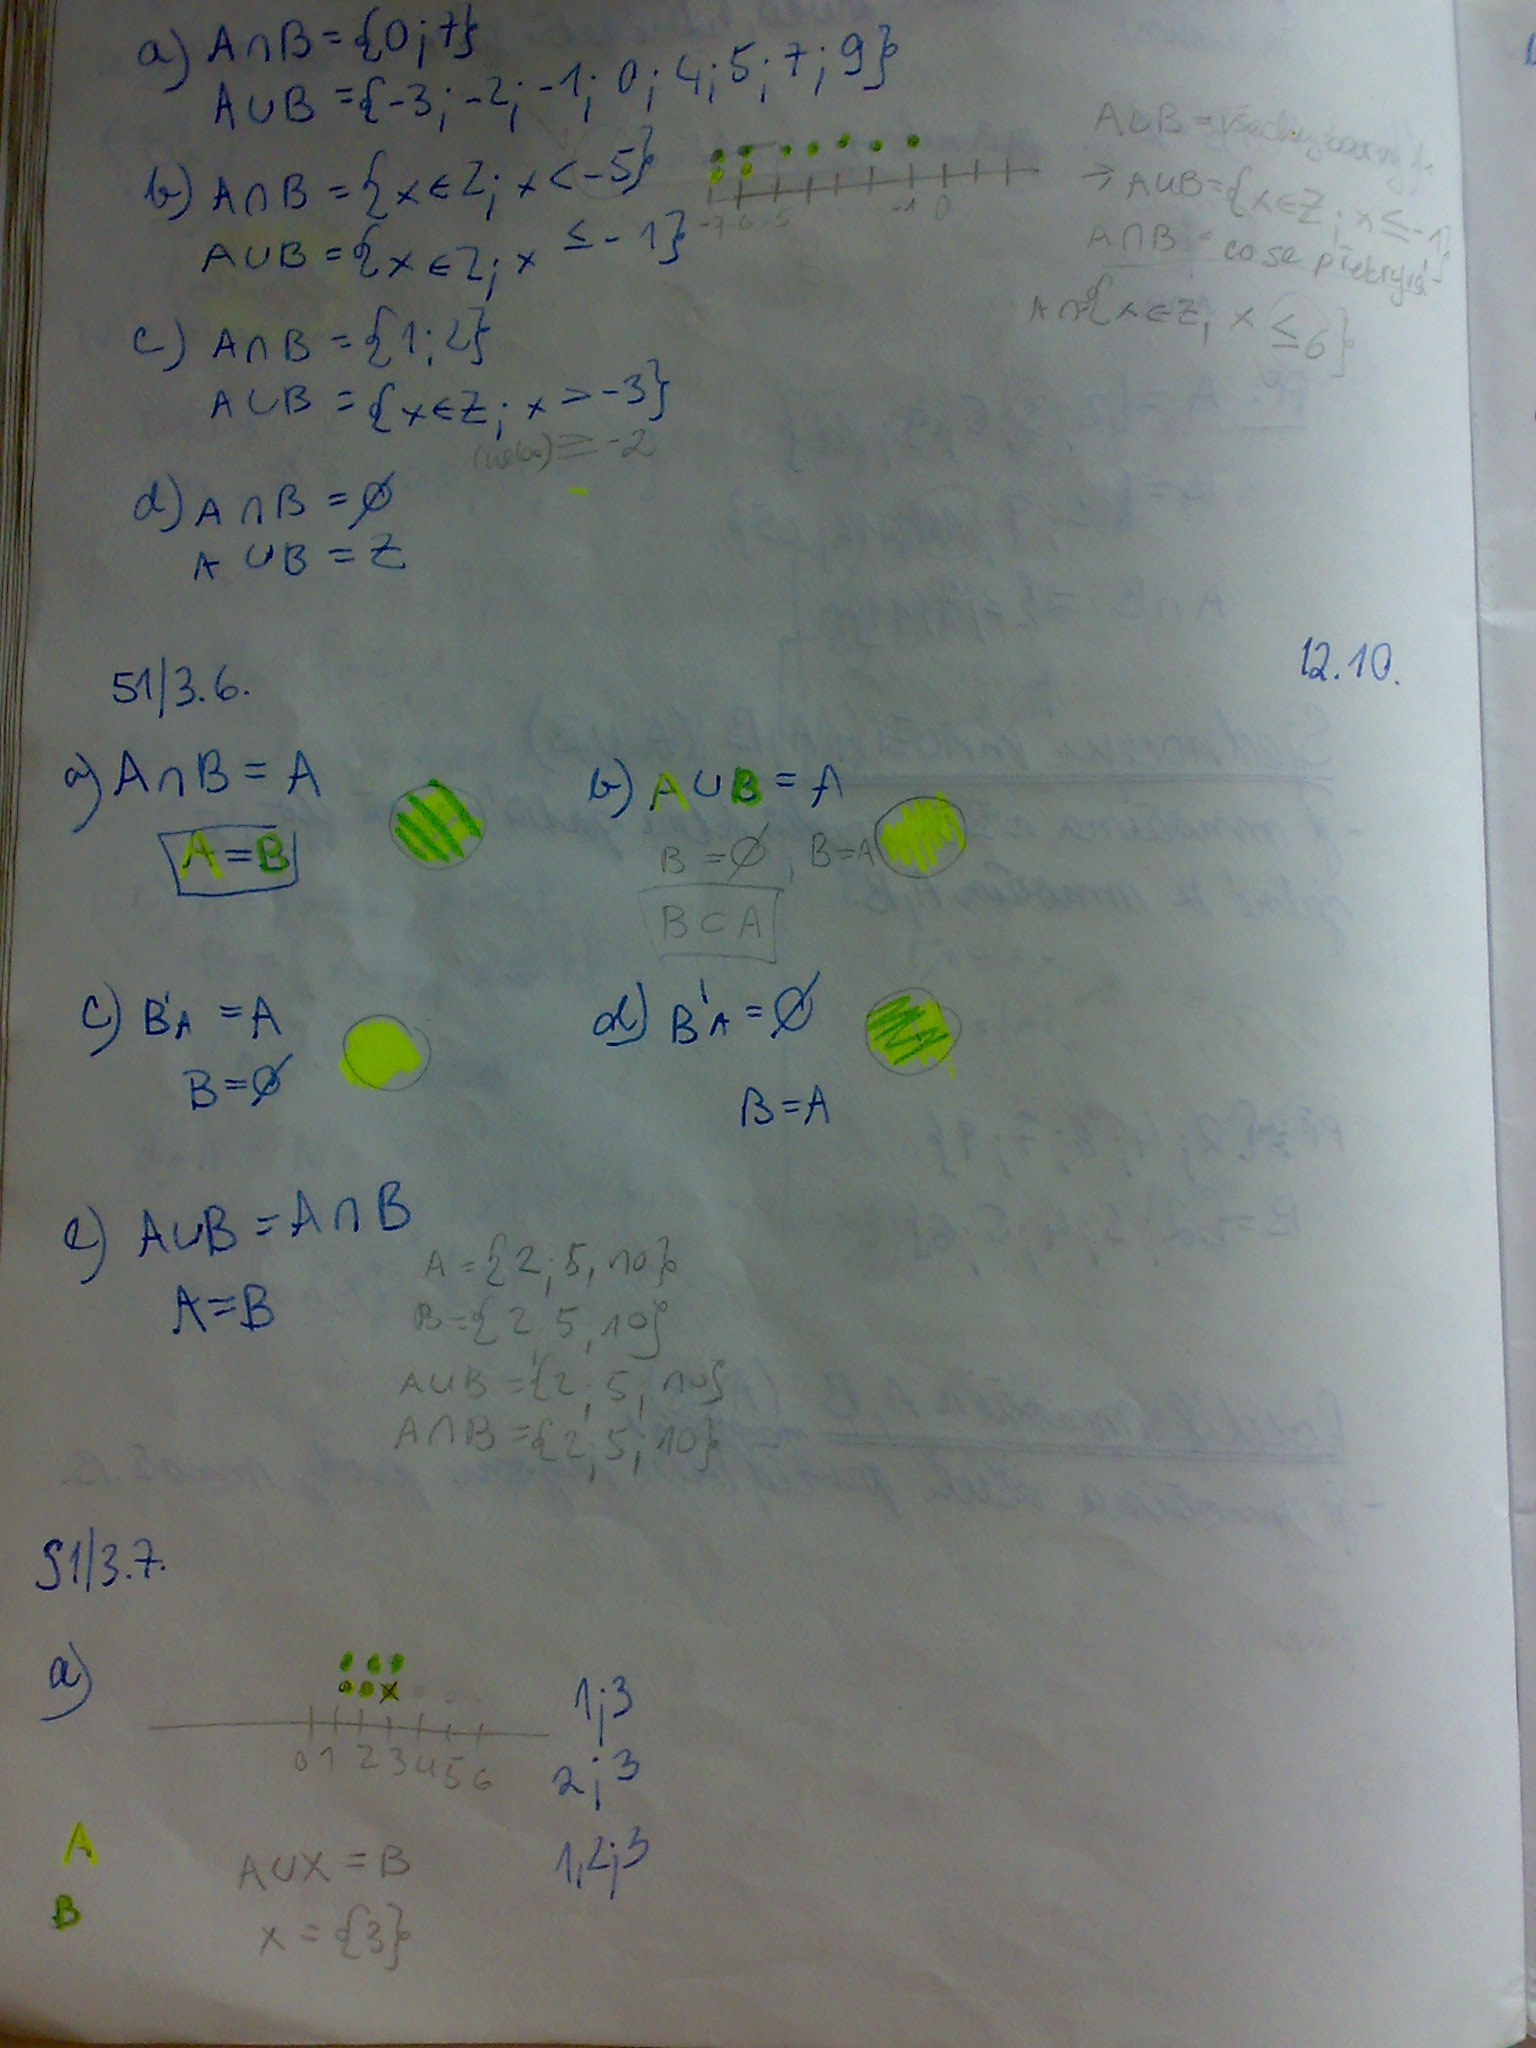 a) A∩B = {0;7}
A∪B = {-3; -2; -1; 0; 4; 5; 7; 9}
b) A∩B = {x∈Z; x < -5}
A∪B = {x∈Z; x ≤ -1}
-7 -6 -5 -1 0
A∪B =
→ A∪B = {x∈Z; x ≤ -1}
A∩B = co se překrývá
A∩{x∈Z; x ≤ 6}
c) A∩B = {1;2}
A∪B = {x∈Z; x > -3}
(nebo) ≥ -2
d) A∩B = ∅
A∪B = Z
12.10.
51/3.6.
a) A∩B = A
A=B
b) A∪B = A
B = ∅, B=A
B⊂A
c) B'A = A
B=∅
d) B'A = ∅
B=A
e) A∪B = A∩B
A=B
A = {2; 5, 10}
B = {2, 5, 10}
A∪B = {2; 5; 10}
A∩B = {2; 5; 10}
51/3.7.
a)
x
0 1 2 3 4 5 6
1;3
2;3
1,2;3
A
B
A∪X = B
x = {3}